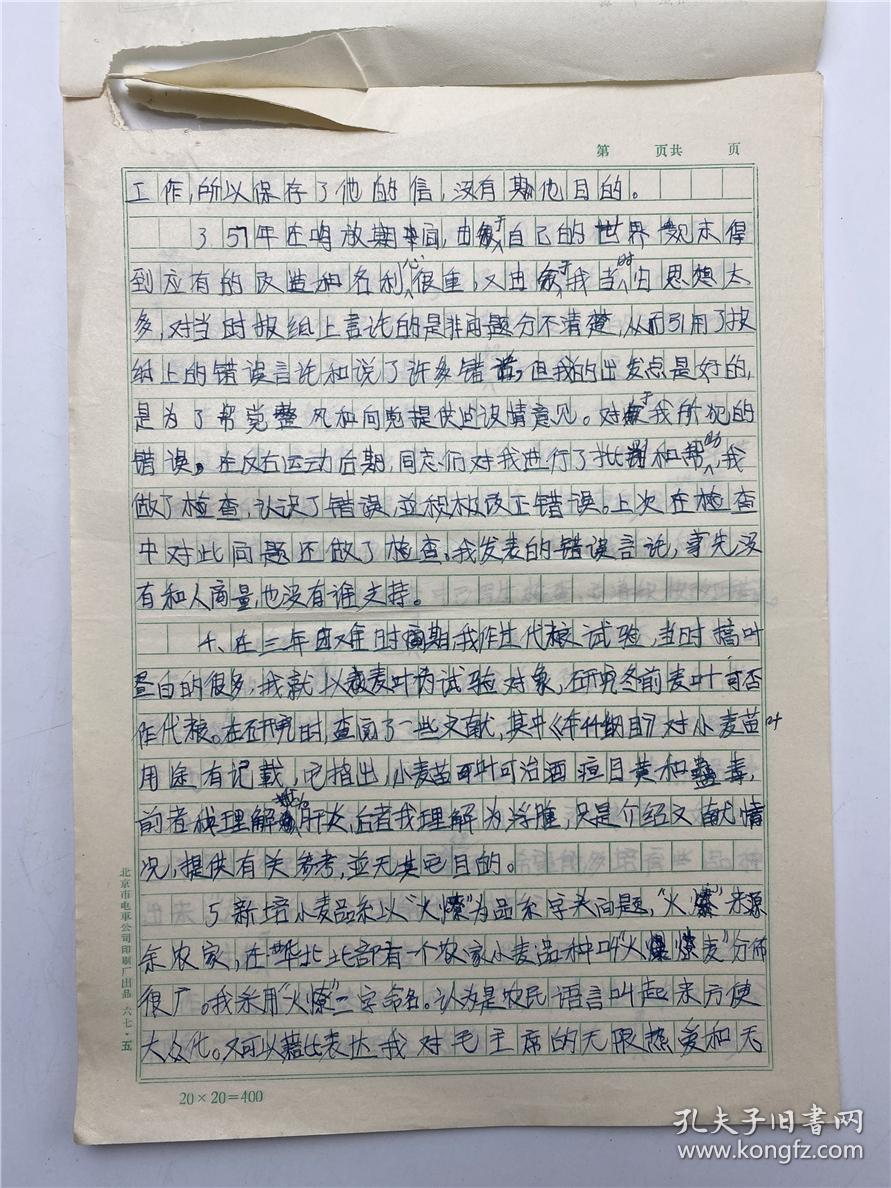 第 页共 页
工作,所以保存了他的信,没有其他目的。
3. 57年在鸣放期间,由于自己的世界观未得
到应有的改造和名利心很重,又由于我当时旧思想太
多,对当时报纸上言论的是非问题分不清楚,从而引用了报
纸上的错误言论和说了许多错话,但我的出发点是好的,
是为了帮党整风和向党提供些该情意见。对于我所犯的
错误,在反右运动后期,同志们对我进行了批判和帮助,我
做了检查,认识了错误,並积极改正错误。上次在检查
中对此问题还做了检查,我发表的错误言论,事先没
有和人商量,也没有谁支持。
4. 在三年困难时期我作过代粮试验,当时搞叶
蛋白的很多,我就以麦叶为试验对象,研究冬前麦叶可否
作代粮。在研究时,查阅了一些文献,其中《本草纲目》对小麦苗叶
用途有记载,它指出,小麦苗叶可治酒疸目黄和蛊毒,
前者 理解 肝炎,后者我理解为浮肿,只是介绍文献情
况,提供有关参考,並无其它目的。
5. 新培小麦品系以“火燎”为品系字头问题,“火燎”来源
余农家,在华北北部有一个农家小麦品种叫“火燎麦”分佈
很广。我采用“火燎”二字命名。认为是农民语言叫起来方便
大众化。又可以藉此表达我对毛主席的无限热爱和无
北京市电车公司印刷厂出品 六七·五
20×20=400
孔夫子旧书网
www.kongfz.com